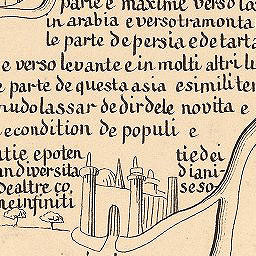 parte e maxime verso la
in arabia e verso tramonta
le parte de persia e de tarta
e verso levante e in molti altri lu
e parte de questa asia e simili ter
nudo lassar de dir dele novita e
e condition de populi e
atie e poten tie dei
an diversita d iani-
de altre co, se so
ne infiniti